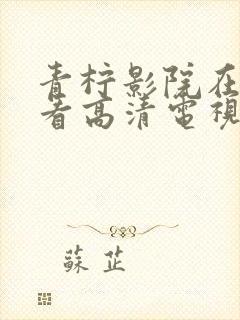 青柠影院在
看高清電視
蘇芷